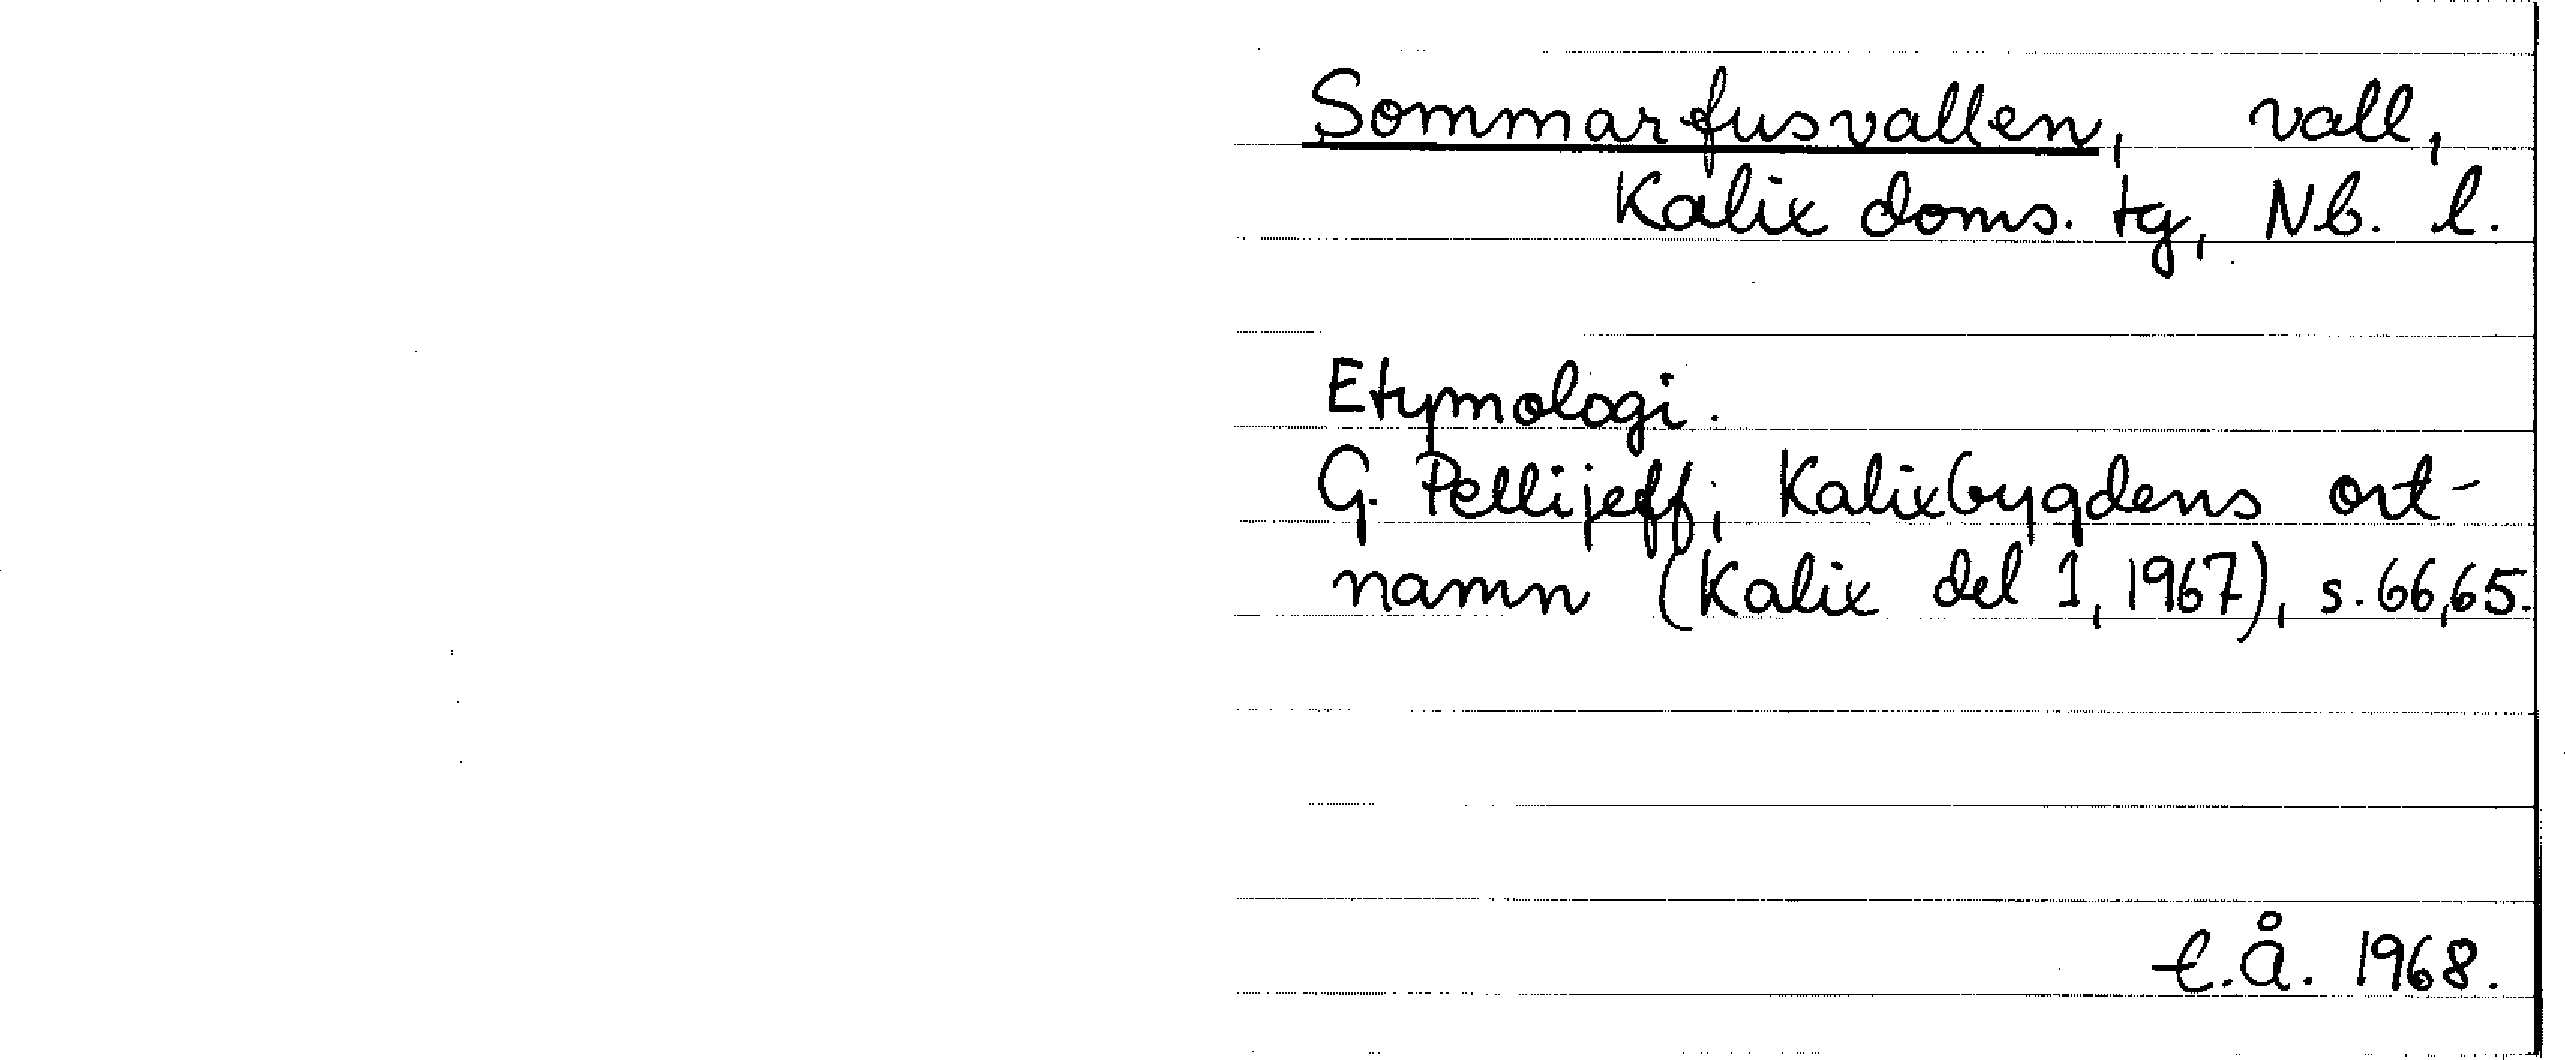 Sommarfusvallen, vall,
Kalix doms. tg, Nb. l.
Etymologi.
G. Pellijeff; Kalixbygdens ort-
namn (Kalix del 1, 1967), s. 66,65.
E.Å. 1968.